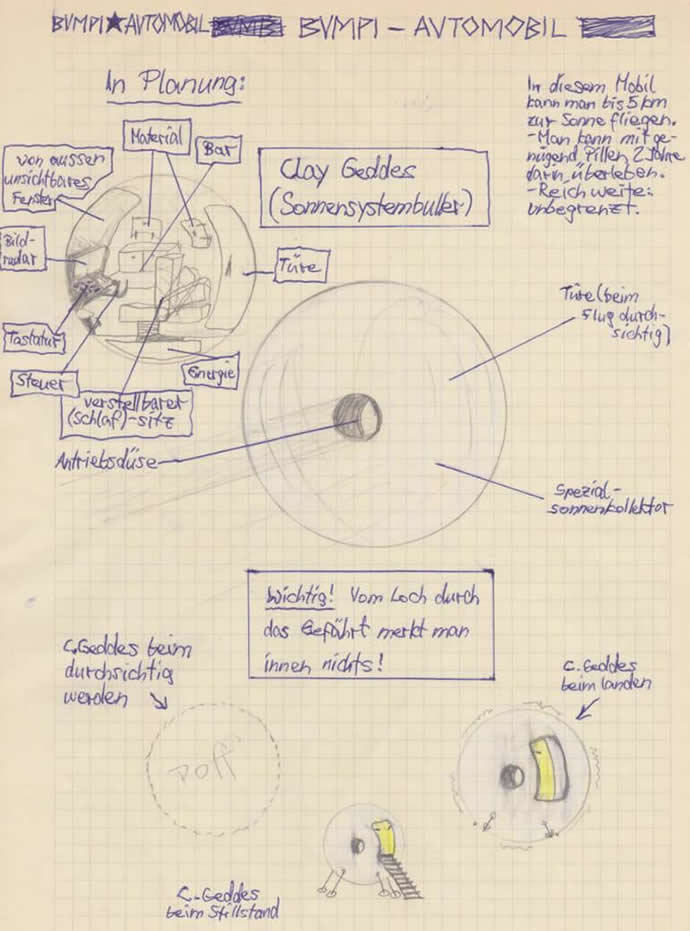 BVMPI★AVTOMOBIL BVMPI – AVTOMOBIL
In Planung:
In diesem Mobil
kann man bis 5 km
zur Sonne fliegen.
-Man kann mit ge-
nügend Pillen 2 Jahre
darin überleben.
-Reichweite:
unbegrenzt.
Material
Bar
von aussen
unsichtbares
Fenster
Clay Geddes
(Sonnensystembuller)
Bild-
radar
Türe
Türe (beim
Flug durch-
sichtig)
Tastatur
Steuer
Energie
verstellbarer
(schlaf)-sitz
Antriebsdüse
Spezial-
sonnenkollektor
Wichtig! Vom Loch durch
das Gefährt merkt man
innen nichts!
C.Geddes beim
durchsichtig
werden
C. Geddes
beim landen
Poff
C.Geddes
beim Stillstand